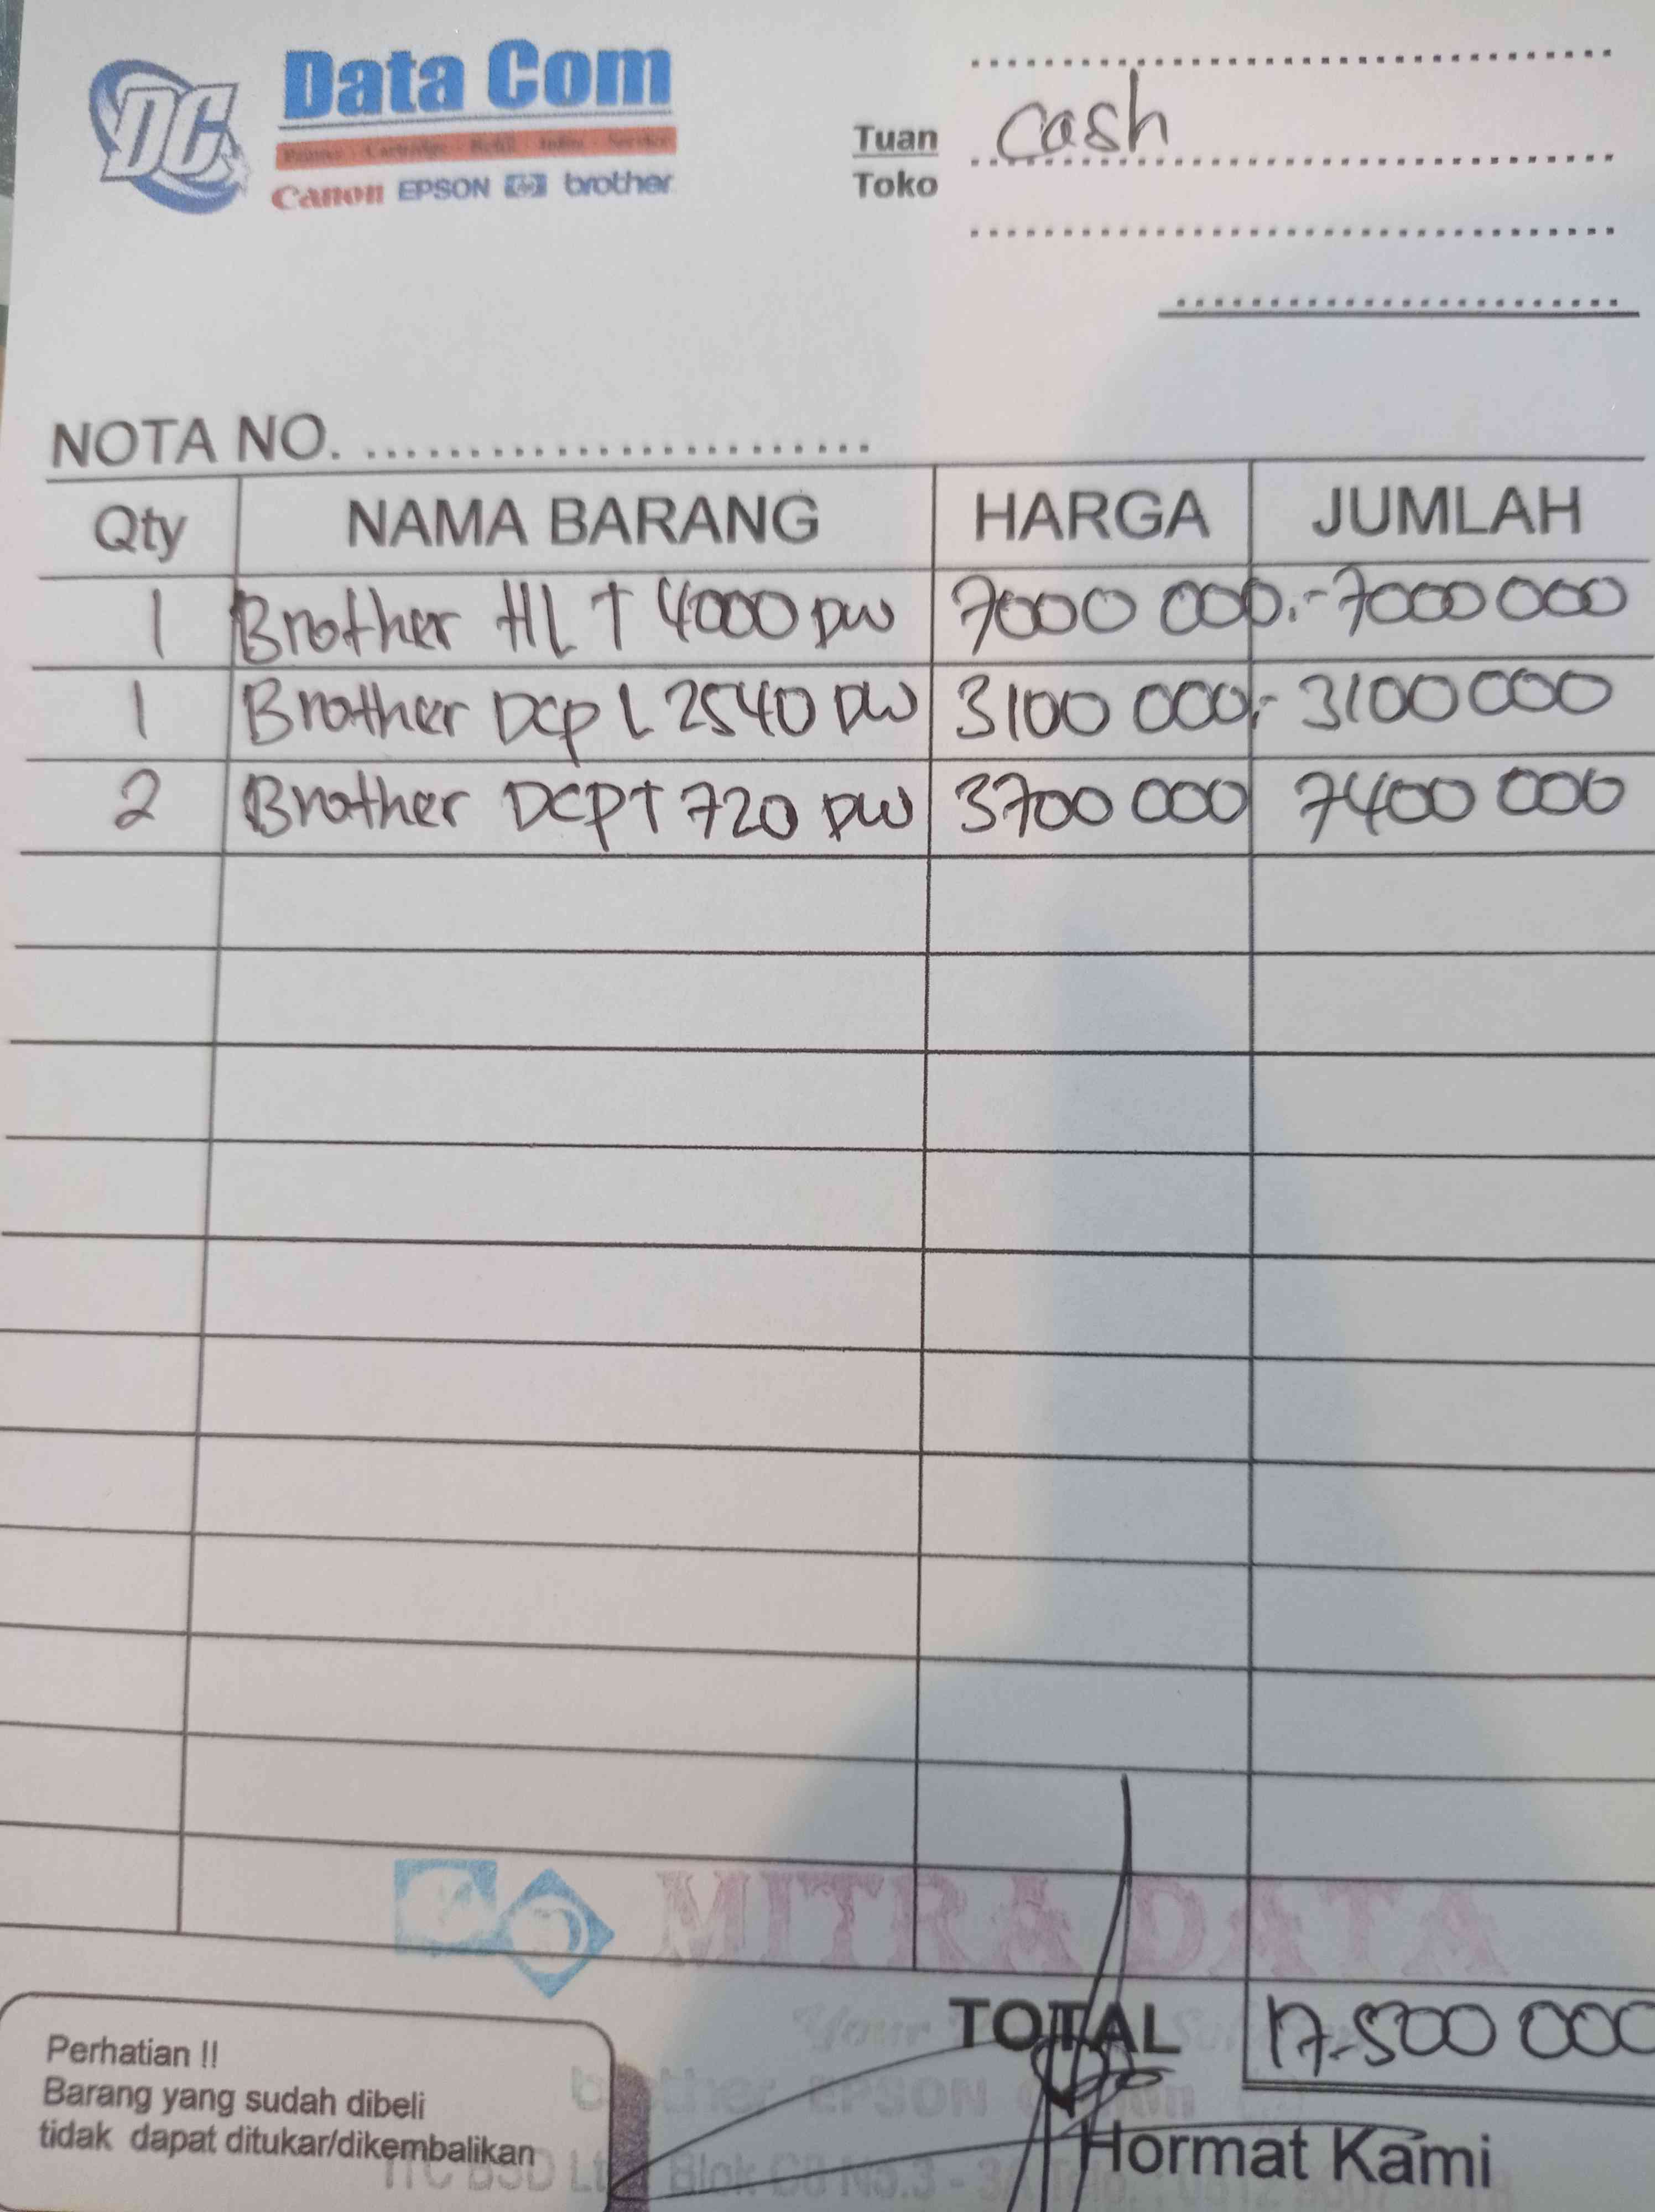 DC
Data Com
Printer - Cartridge - Refill - Infus - Service
Canon EPSON hp brother
Tuan
Toko
Cash
NOTA NO.
Qty NAMA BARANG HARGA JUMLAH
1 Brother HL T 4000 DW 7000 000.- 7000 000
1 Brother Dcp L 2540 DW 3100 000,- 3100 000
2 Brother DCP T 720 DW 3700 000 7400 000
MITRA DATA
TOTAL 17.500 000
Perhatian !!
Barang yang sudah dibeli
tidak dapat ditukar/dikembalikan
brother EPSON
Hormat Kami
ITC BSD Lt. Blok C8 No.3 - 3A